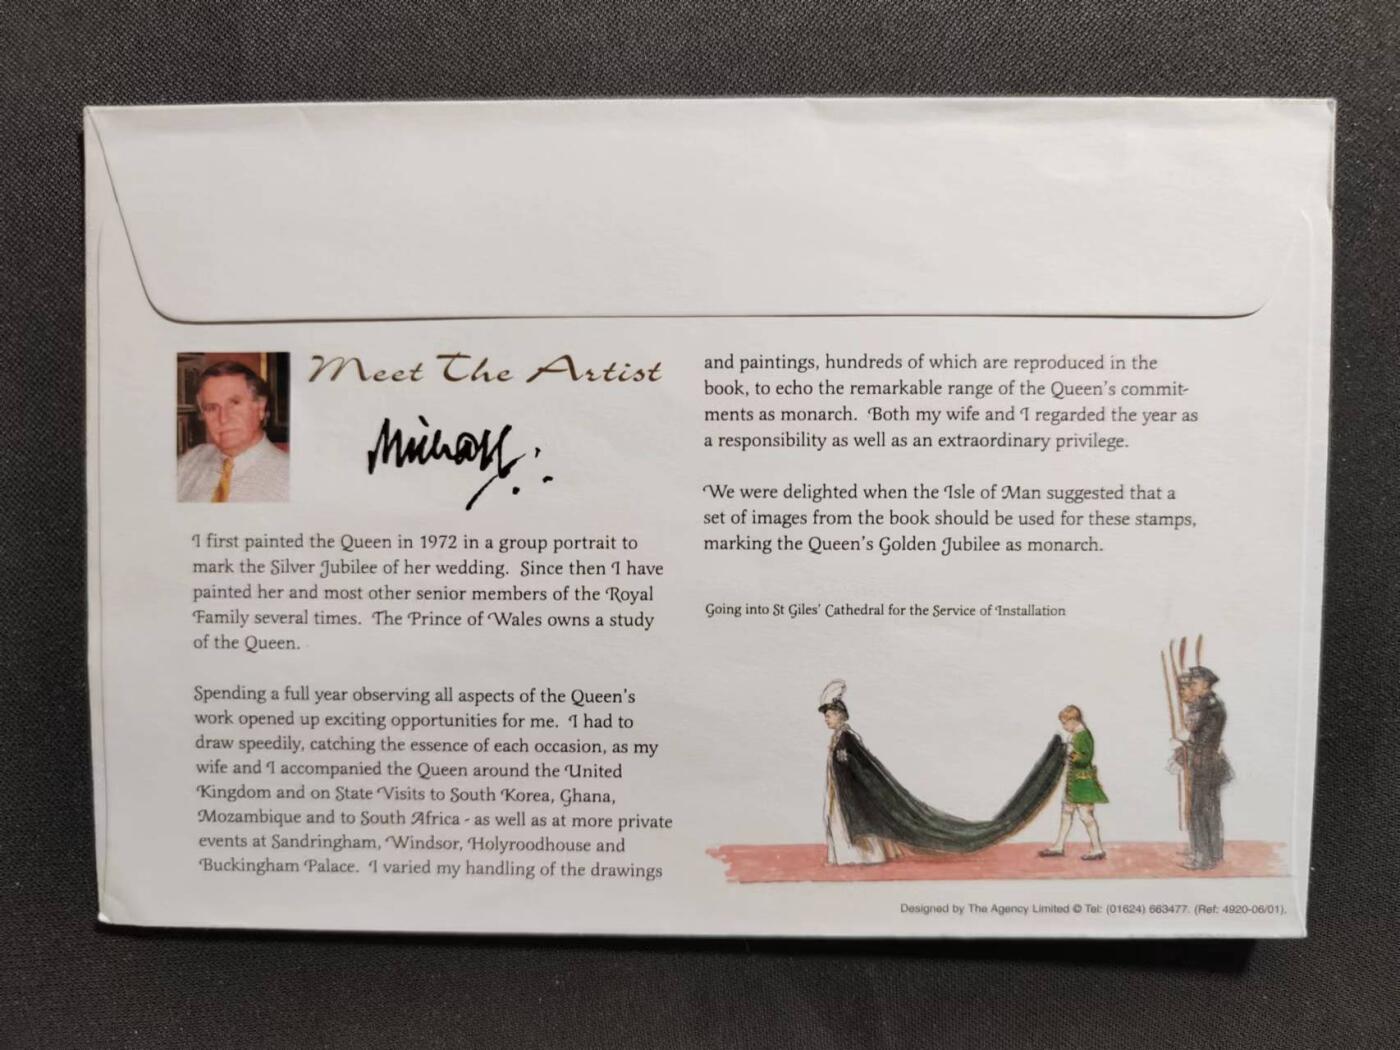 Meet The Artist
I first painted the Queen in 1972 in a group portrait to
mark the Silver Jubilee of her wedding. Since then I have
painted her and most other senior members of the Royal
Family several times. The Prince of Wales owns a study
of the Queen.
Spending a full year observing all aspects of the Queen's
work opened up exciting opportunities for me. I had to
draw speedily, catching the essence of each occasion, as my
wife and I accompanied the Queen around the United
Kingdom and on State Visits to South Korea, Ghana,
Mozambique and to South Africa - as well as at more private
events at Sandringham, Windsor, Holyroodhouse and
Buckingham Palace. I varied my handling of the drawings
and paintings, hundreds of which are reproduced in the
book, to echo the remarkable range of the Queen's commit-
ments as monarch. Both my wife and I regarded the year as
a responsibility as well as an extraordinary privilege.
We were delighted when the Isle of Man suggested that a
set of images from the book should be used for these stamps,
marking the Queen's Golden Jubilee as monarch.
Going into St Giles' Cathedral for the Service of Installation
Designed by The Agency Limited © Tel: (01624) 663477. (Ref: 4920-06/01).